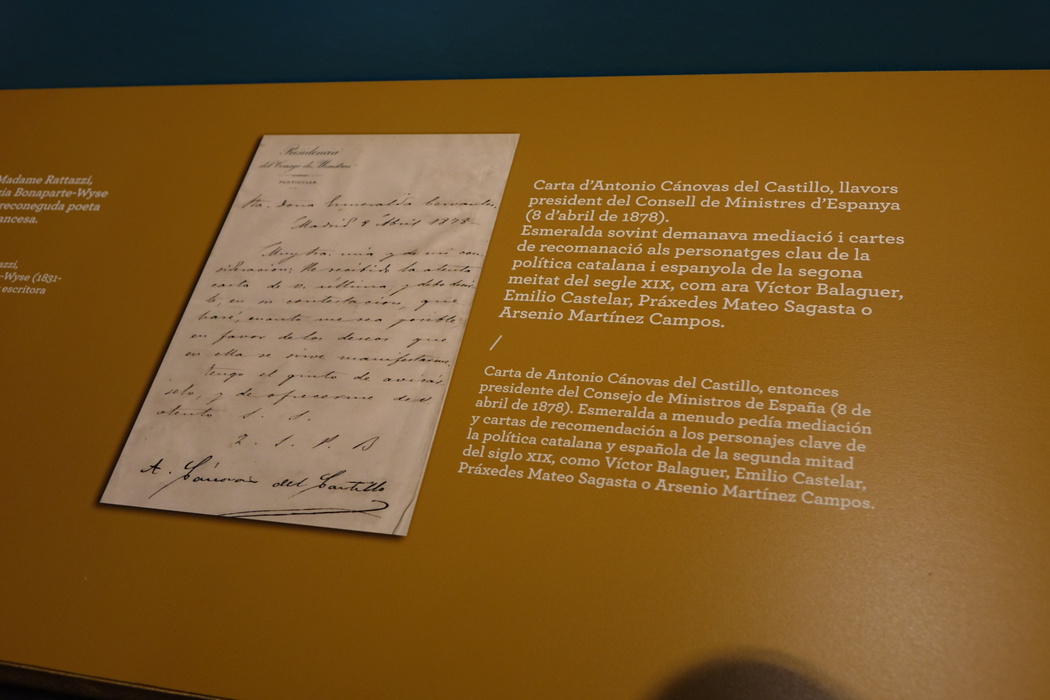 Madame Rattazzi,
Bonaparte-Wyse
reconeguda poeta
-Wyse (1831-
escritora
Presidencia
del Consejo de Ministros
PARTICULAR
Sra. dona Esmeralda Cervantes,
Madrid 8 Abril 1878.
Muy Sra. mia y de mi con-
sideracion: He recibido la atenta
carta de V. última y debo decir
le, en su contestacion, que
haré cuanto me sea posible
en favor de los deseos que
en ella se sirve manifestarme.
Tengo el gusto de avisár-
selo, y de ofrecerme de V.
atento S. S.
Q. S. P. B
A. Cánovas del Castillo
Carta d'Antonio Cánovas del Castillo, llavors
president del Consell de Ministres d'Espanya
(8 d'abril de 1878).
Esmeralda sovint demanava mediació i cartes
de recomanació als personatges clau de la
política catalana i espanyola de la segona
meitat del segle XIX, com ara Víctor Balaguer,
Emilio Castelar, Práxedes Mateo Sagasta o
Arsenio Martínez Campos.
/
Carta de Antonio Cánovas del Castillo, entonces
presidente del Consejo de Ministros de España (8 de
abril de 1878). Esmeralda a menudo pedía mediación
y cartas de recomendación a los personajes clave de
la política catalana y española de la segunda mitad
del siglo XIX, como Víctor Balaguer, Emilio Castelar,
Práxedes Mateo Sagasta o Arsenio Martínez Campos.